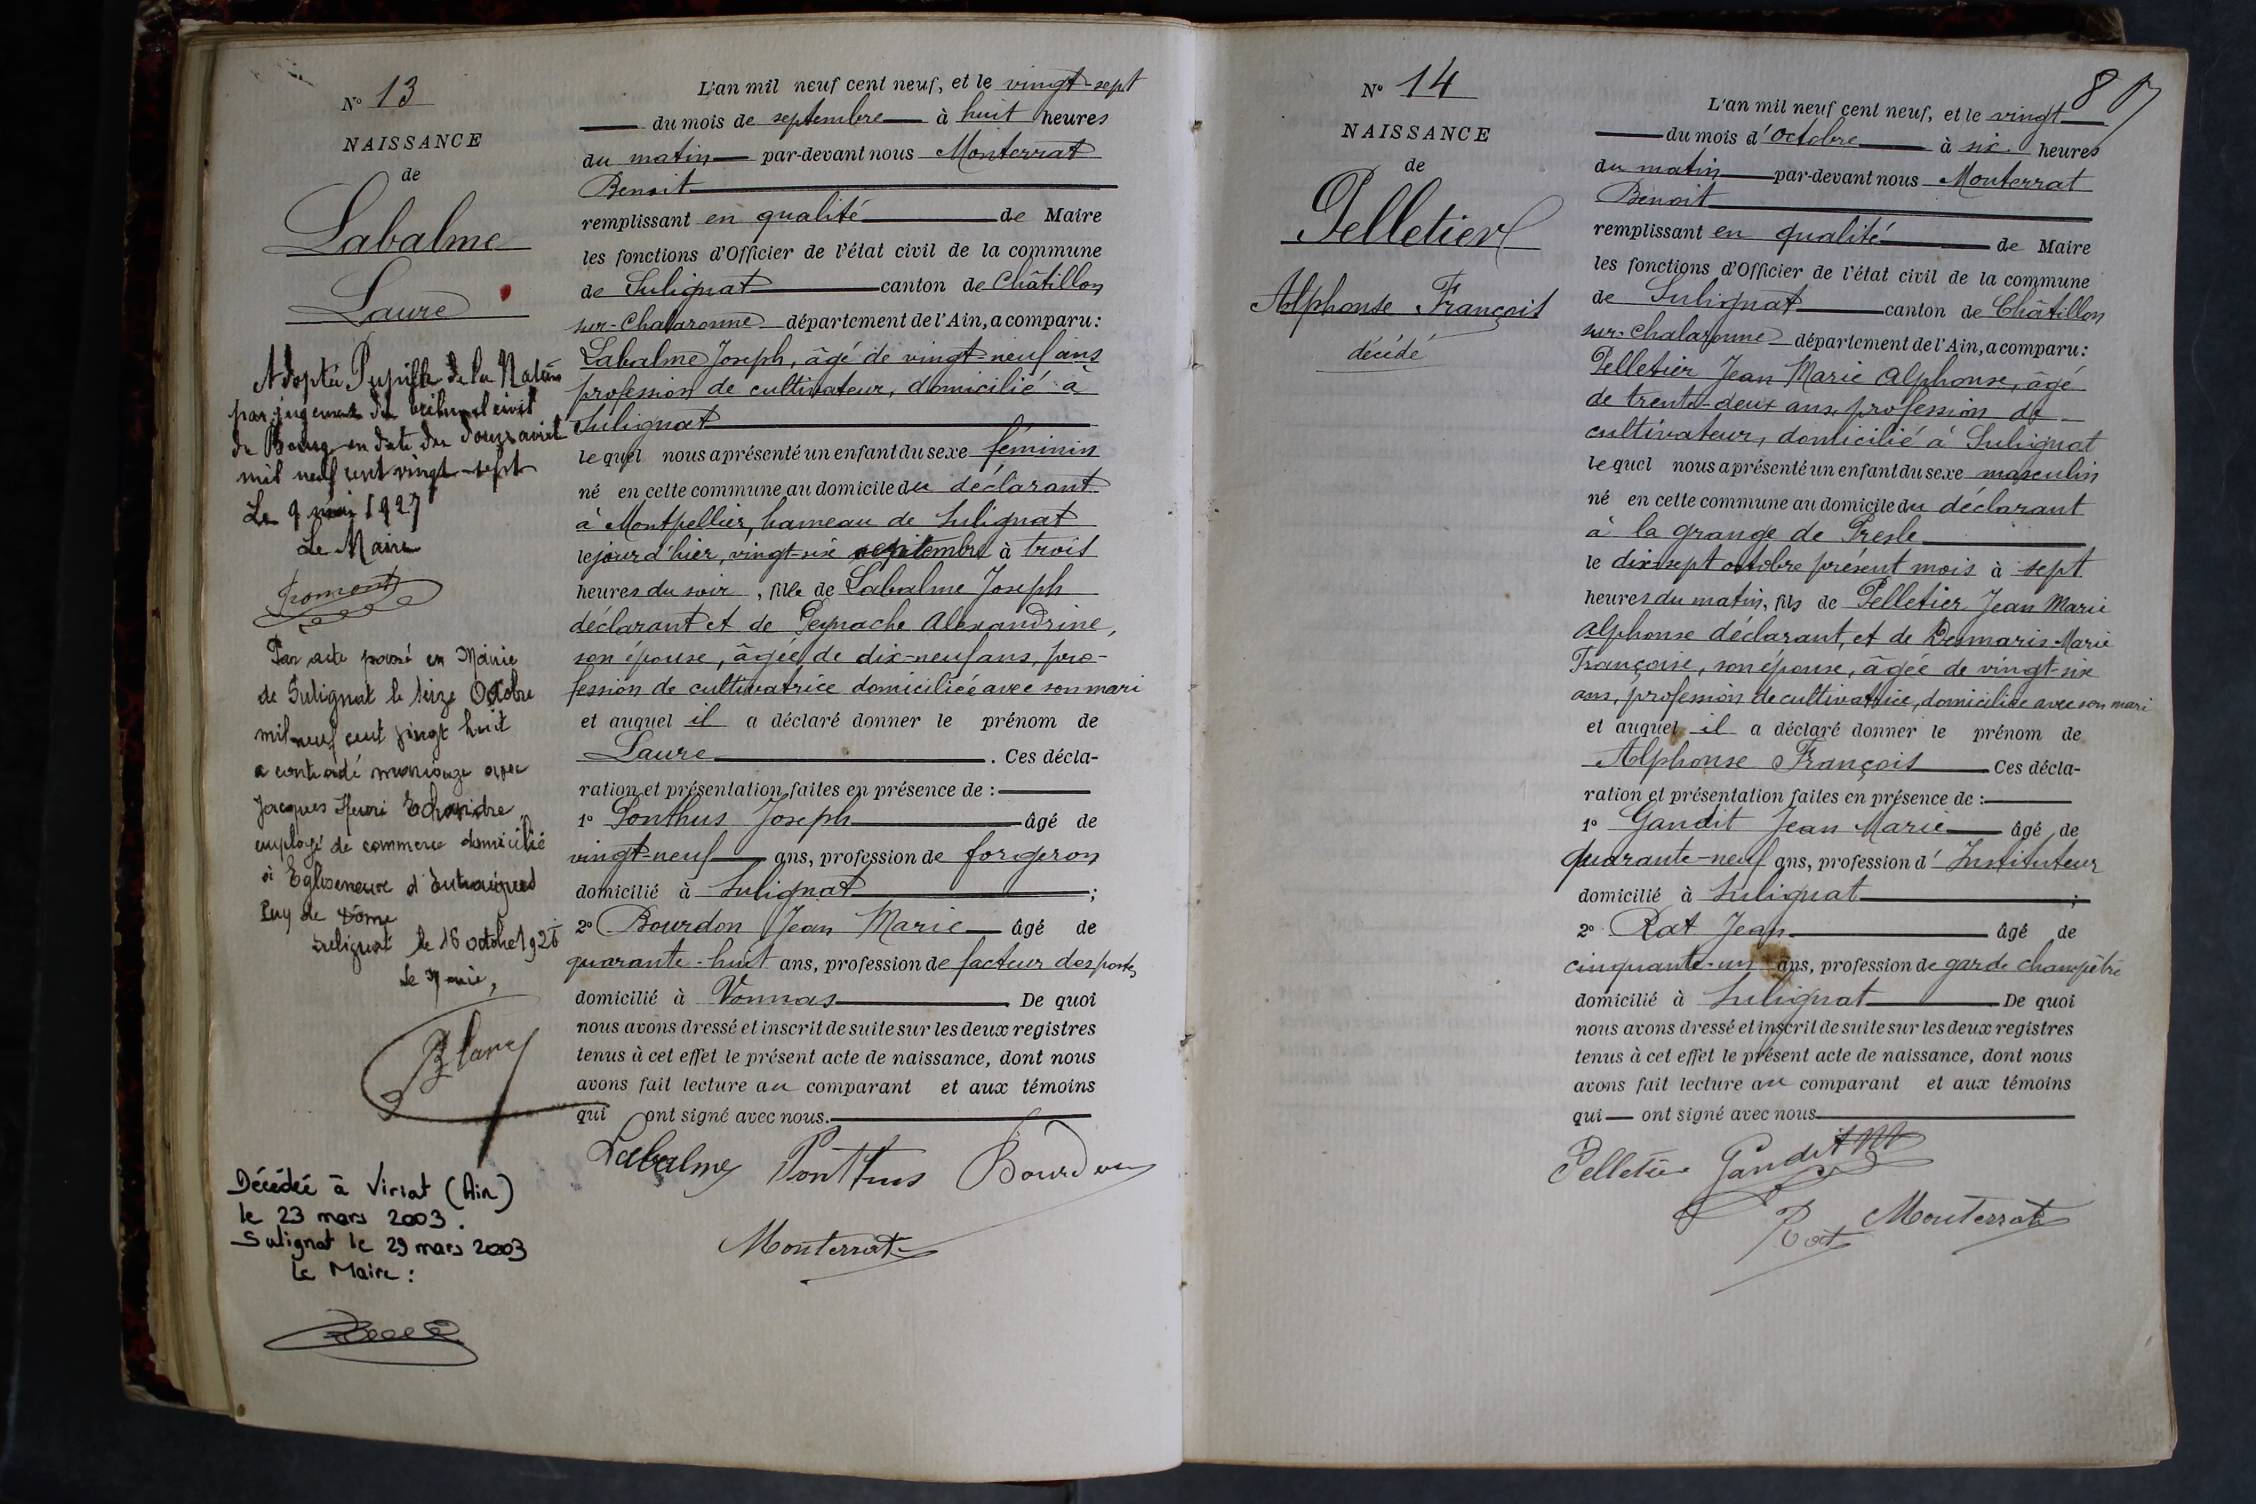 N° 13
NAISSANCE
de
Labalme
Laure
Adoptée Pupille de la Nation
par jugement du tribunal civil
de Bourg en date du douze avril
mil neuf cent vingt-sept
Le 9 mai 1927
Le Maire
Par acte passé en Mairie
de Sulignat le seize Octobre
mil neuf cent vingt huit
a contracté mariage avec
Jacques Henri
employé de commerce domicilié
à Egliseneuve d'Entraigues
Puy de Dôme
Sulignat le 16 octobre 1928
Le Maire,
Blanc
Décédée à Viriat (Ain)
le 23 mars 2003.
Sulignat le 29 mars 2003
Le Maire :
L'an mil neuf cent neuf, et le vingt-sept
du mois de septembre à huit heures
du matin par-devant nous Monterrat
Benoit
remplissant en qualité de Maire
les fonctions d'Officier de l'état civil de la commune
de Sulignat canton de Châtillon
sur-Chalaronne département de l'Ain, a comparu :
Labalme Joseph, âgé de vingt-neuf ans
profession de cultivateur, domicilié à
Sulignat
lequel nous a présenté un enfant du sexe féminin
né en cette commune au domicile du déclarant
à Montpellier, hameau de Sulignat
le jour d'hier, vingt-six septembre à trois
heures du soir, fille de Labalme Joseph
déclarant et de Peynache Alexandrine,
son épouse, âgée de dix-neuf ans, pro-
fession de cultivatrice domiciliée avec son mari
et auquel il a déclaré donner le prénom de
Laure. Ces décla-
ration et présentation faites en présence de :
1° Ponthus Joseph âgé de
vingt-neuf ans, profession de forgeron
domicilié à Sulignat ;
2° Bourdon Jean Marie âgé de
quarante-huit ans, profession de facteur des postes
domicilié à Vonnas De quoi
nous avons dressé et inscrit de suite sur les deux registres
tenus à cet effet le présent acte de naissance, dont nous
avons fait lecture au comparant et aux témoins
qui ont signé avec nous.
Labalme Ponthus Bourdon
Monterrat
N° 14
NAISSANCE
de
Pelletier
Alphonse François
décédé
8
L'an mil neuf cent neuf, et le vingt
du mois d'octobre à six heures
du matin par-devant nous Monterrat
Benoit
remplissant en qualité de Maire
les fonctions d'Officier de l'état civil de la commune
de Sulignat canton de Châtillon
sur-Chalaronne département de l'Ain, a comparu :
Pelletier Jean Marie Alphonse, âgé
de trente-deux ans, profession de
cultivateur, domicilié à Sulignat
lequel nous a présenté un enfant du sexe masculin
né en cette commune au domicile du déclarant
à la grange de Presle
le dix-sept octobre présent mois à sept
heures du matin, fils de Pelletier Jean Marie
Alphonse déclarant, et de Desmaris Marie
Françoise, son épouse, âgée de vingt-six
ans, profession de cultivatrice, domiciliée avec son mari
et auquel il a déclaré donner le prénom de
Alphonse François Ces décla-
ration et présentation faites en présence de :
1° Gandit Jean Marie âgé de
quarante-neuf ans, profession d'Instituteur
domicilié à Sulignat ;
2° Rat Jean âgé de
cinquante-un ans, profession de garde champêtre
domicilié à Sulignat De quoi
nous avons dressé et inscrit de suite sur les deux registres
tenus à cet effet le présent acte de naissance, dont nous
avons fait lecture au comparant et aux témoins
qui ont signé avec nous
Pelletier Gandit
Rat Monterrat